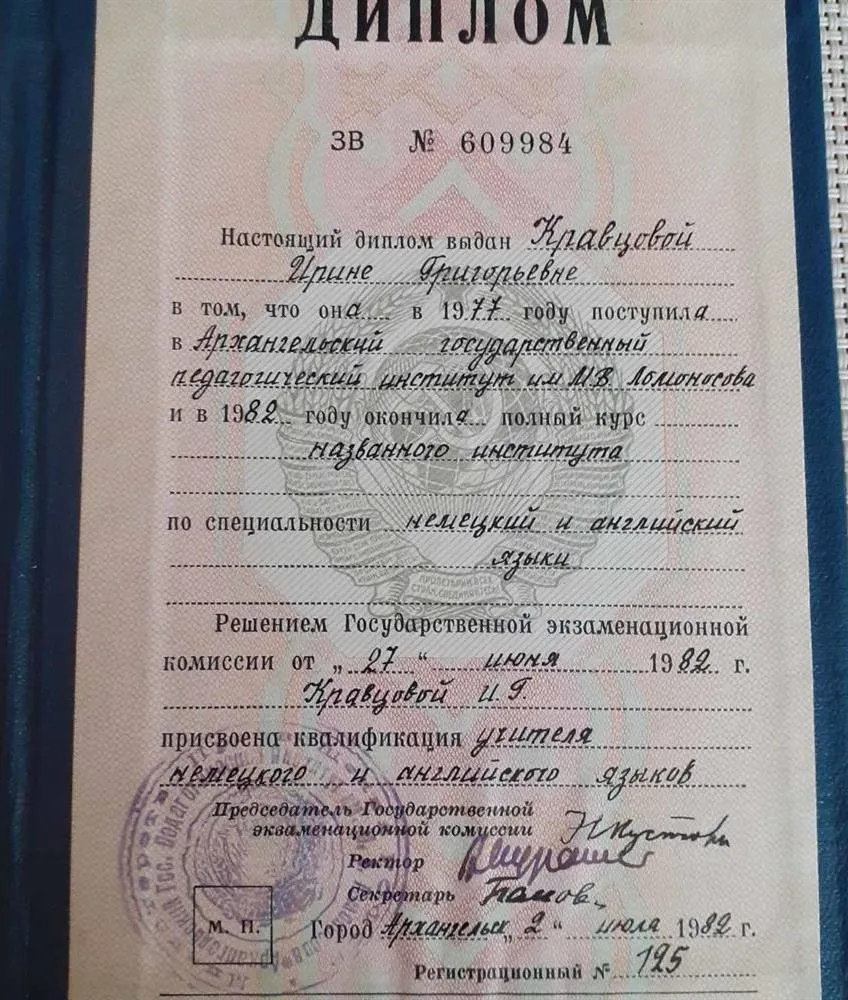 ДИПЛОМ
ЗВ № 609984
Настоящий диплом выдан Кравцовой
Ирине Григорьевне
в том, что она в 1977 году поступила
в Архангельский государственный
педагогический институт им М.В. Ломоносова
и в 1982 году окончила полный курс
названного института
по специальности немецкий и английский
языки
ПРОЛЕТАРИИ ВСЕХ
СТРАН, СОЕДИНЯЙТЕСЬ!
Решением Государственной экзаменационной
комиссии от „27“ июня 1982 г.
Кравцовой И.Г.
присвоена квалификация учителя
немецкого и английского языков
Председатель Государственной
экзаменационной комиссии
Ректор
Секретарь
М. П.
Город Архангельск „2“ июля 1982 г.
Регистрационный № 125